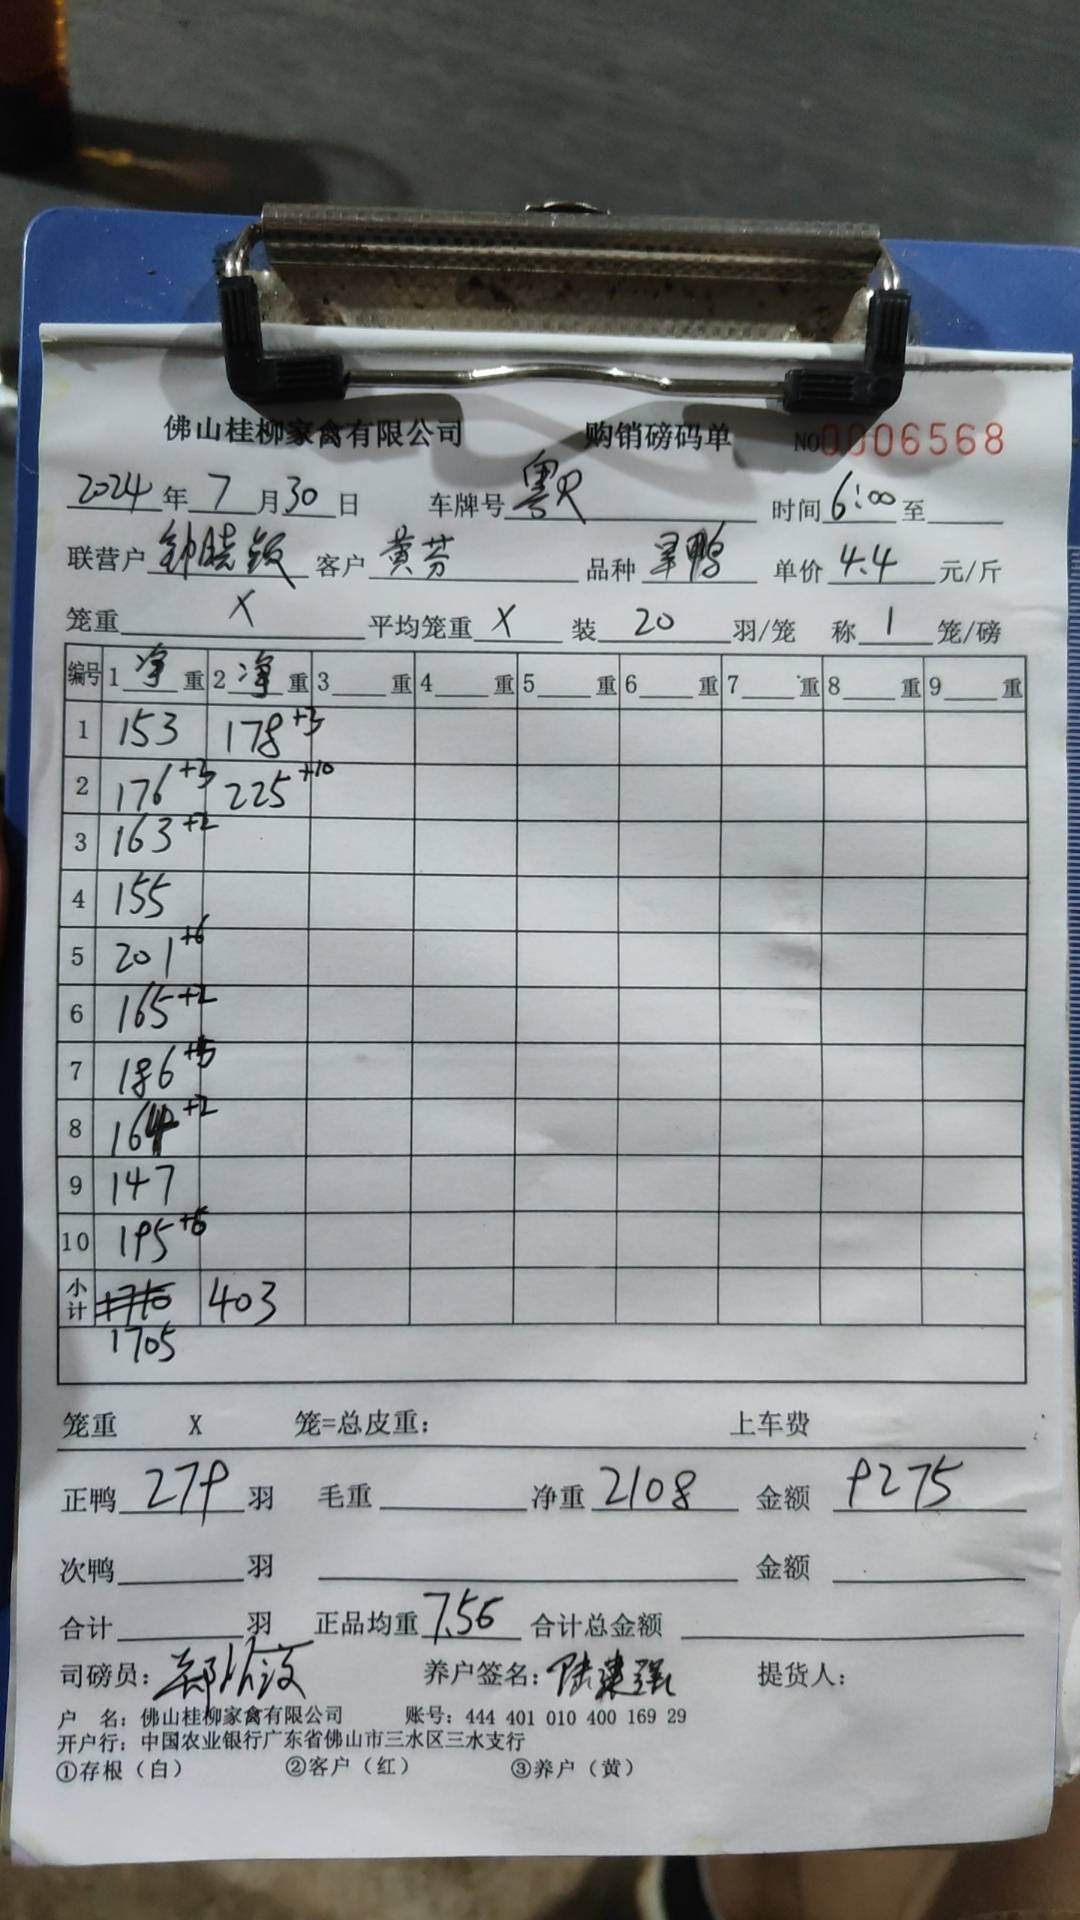 佛山桂柳家禽有限公司 购销磅码单 NO 0006568
2024年7月30日 车牌号 粤R 时间 6:00 至
联营户 钟晓颖 客户 黄芬 品种 旱鸭 单价 4.4 元/斤
笼重 X 平均笼重 X 装 20 羽/笼 称 1 笼/磅
编号 1 净 重 2 净 重 3 重 4 重 5 重 6 重 7 重 8 重 9 重
1 153 178+3
2 176+3 225+10
3 163+2
4 155
5 201+6
6 165+2
7 186+5
8 164+2
9 147
10 195+6
小计 1710 403
1705
笼重 X 笼=总皮重： 上车费
正鸭 279 羽 毛重 净重 2108 金额 9275
次鸭 羽 金额
合计 羽 正品均重 7.56 合计总金额
司磅员： 养户签名：陆建强 提货人：
户 名：佛山桂柳家禽有限公司 账号：444 401 010 400 169 29
开户行：中国农业银行广东省佛山市三水区三水支行
①存根（白） ②客户（红） ③养户（黄）